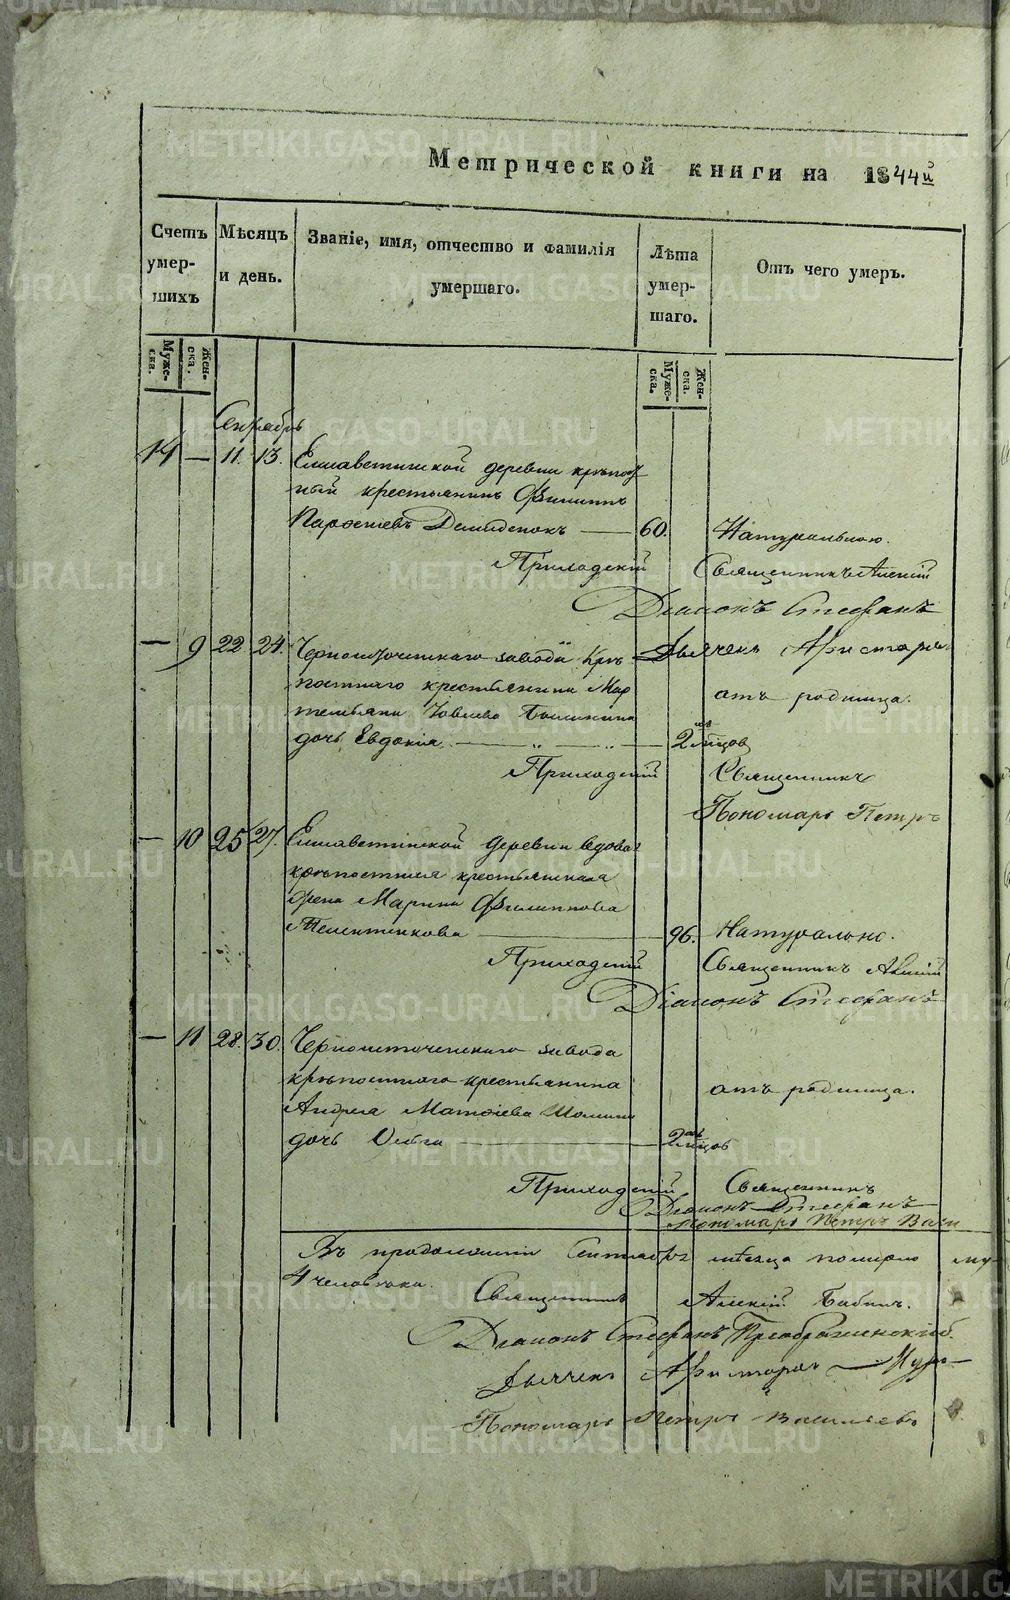 Метрической книги на 1844й
Счетъ умер- шихъ
Мѣсяцъ и день.
Званіе, имя, отчество и фамилія умершаго.
Лѣта умер- шаго.
Отъ чего умеръ.
Муже- ска.
Жен- ска.
Муже- ска.
Жен- ска.
14 — 11. 13. Елисаветинской деревни крѣпост
ный крестьянинъ Филиппъ
60. Натуральною.
Приходскій Священникъ Алексій
Діаконъ Стефанъ
— 9 22 24. Черноисточинскаго завода Крѣ Дьячекъ Аристархъ
постнаго крестьянина Мар отъ родимца.
дочь Евдокія 2 мѣсяцовъ
Приходскій Священникъ
Пономарь Петръ
— 10 25 27. Елисаветинской деревни вдова
крѣпостная крестьянская
Марина Филиппова
96. Натурально.
Приходскій Священникъ Алексій
Діаконъ Стефанъ
— 11 28. 30. Черноисточинскаго завода
крѣпостнаго крестьянина отъ родимца.
Андрея Матѳіева
дочь Ольга 2 мѣсяцовъ
Приходскій Священникъ
Діаконъ Стефанъ
Пономарь Петръ Васи
Въ продолженіи Сентября мѣсяца померло му
4 человѣка.
Священникъ Алексій Бабинъ.
Діаконъ Стефанъ Преображенскій.
Дьячекъ Аристархъ
Пономарь Петръ Васильевъ
METRIKI.GASO-URAL.RU